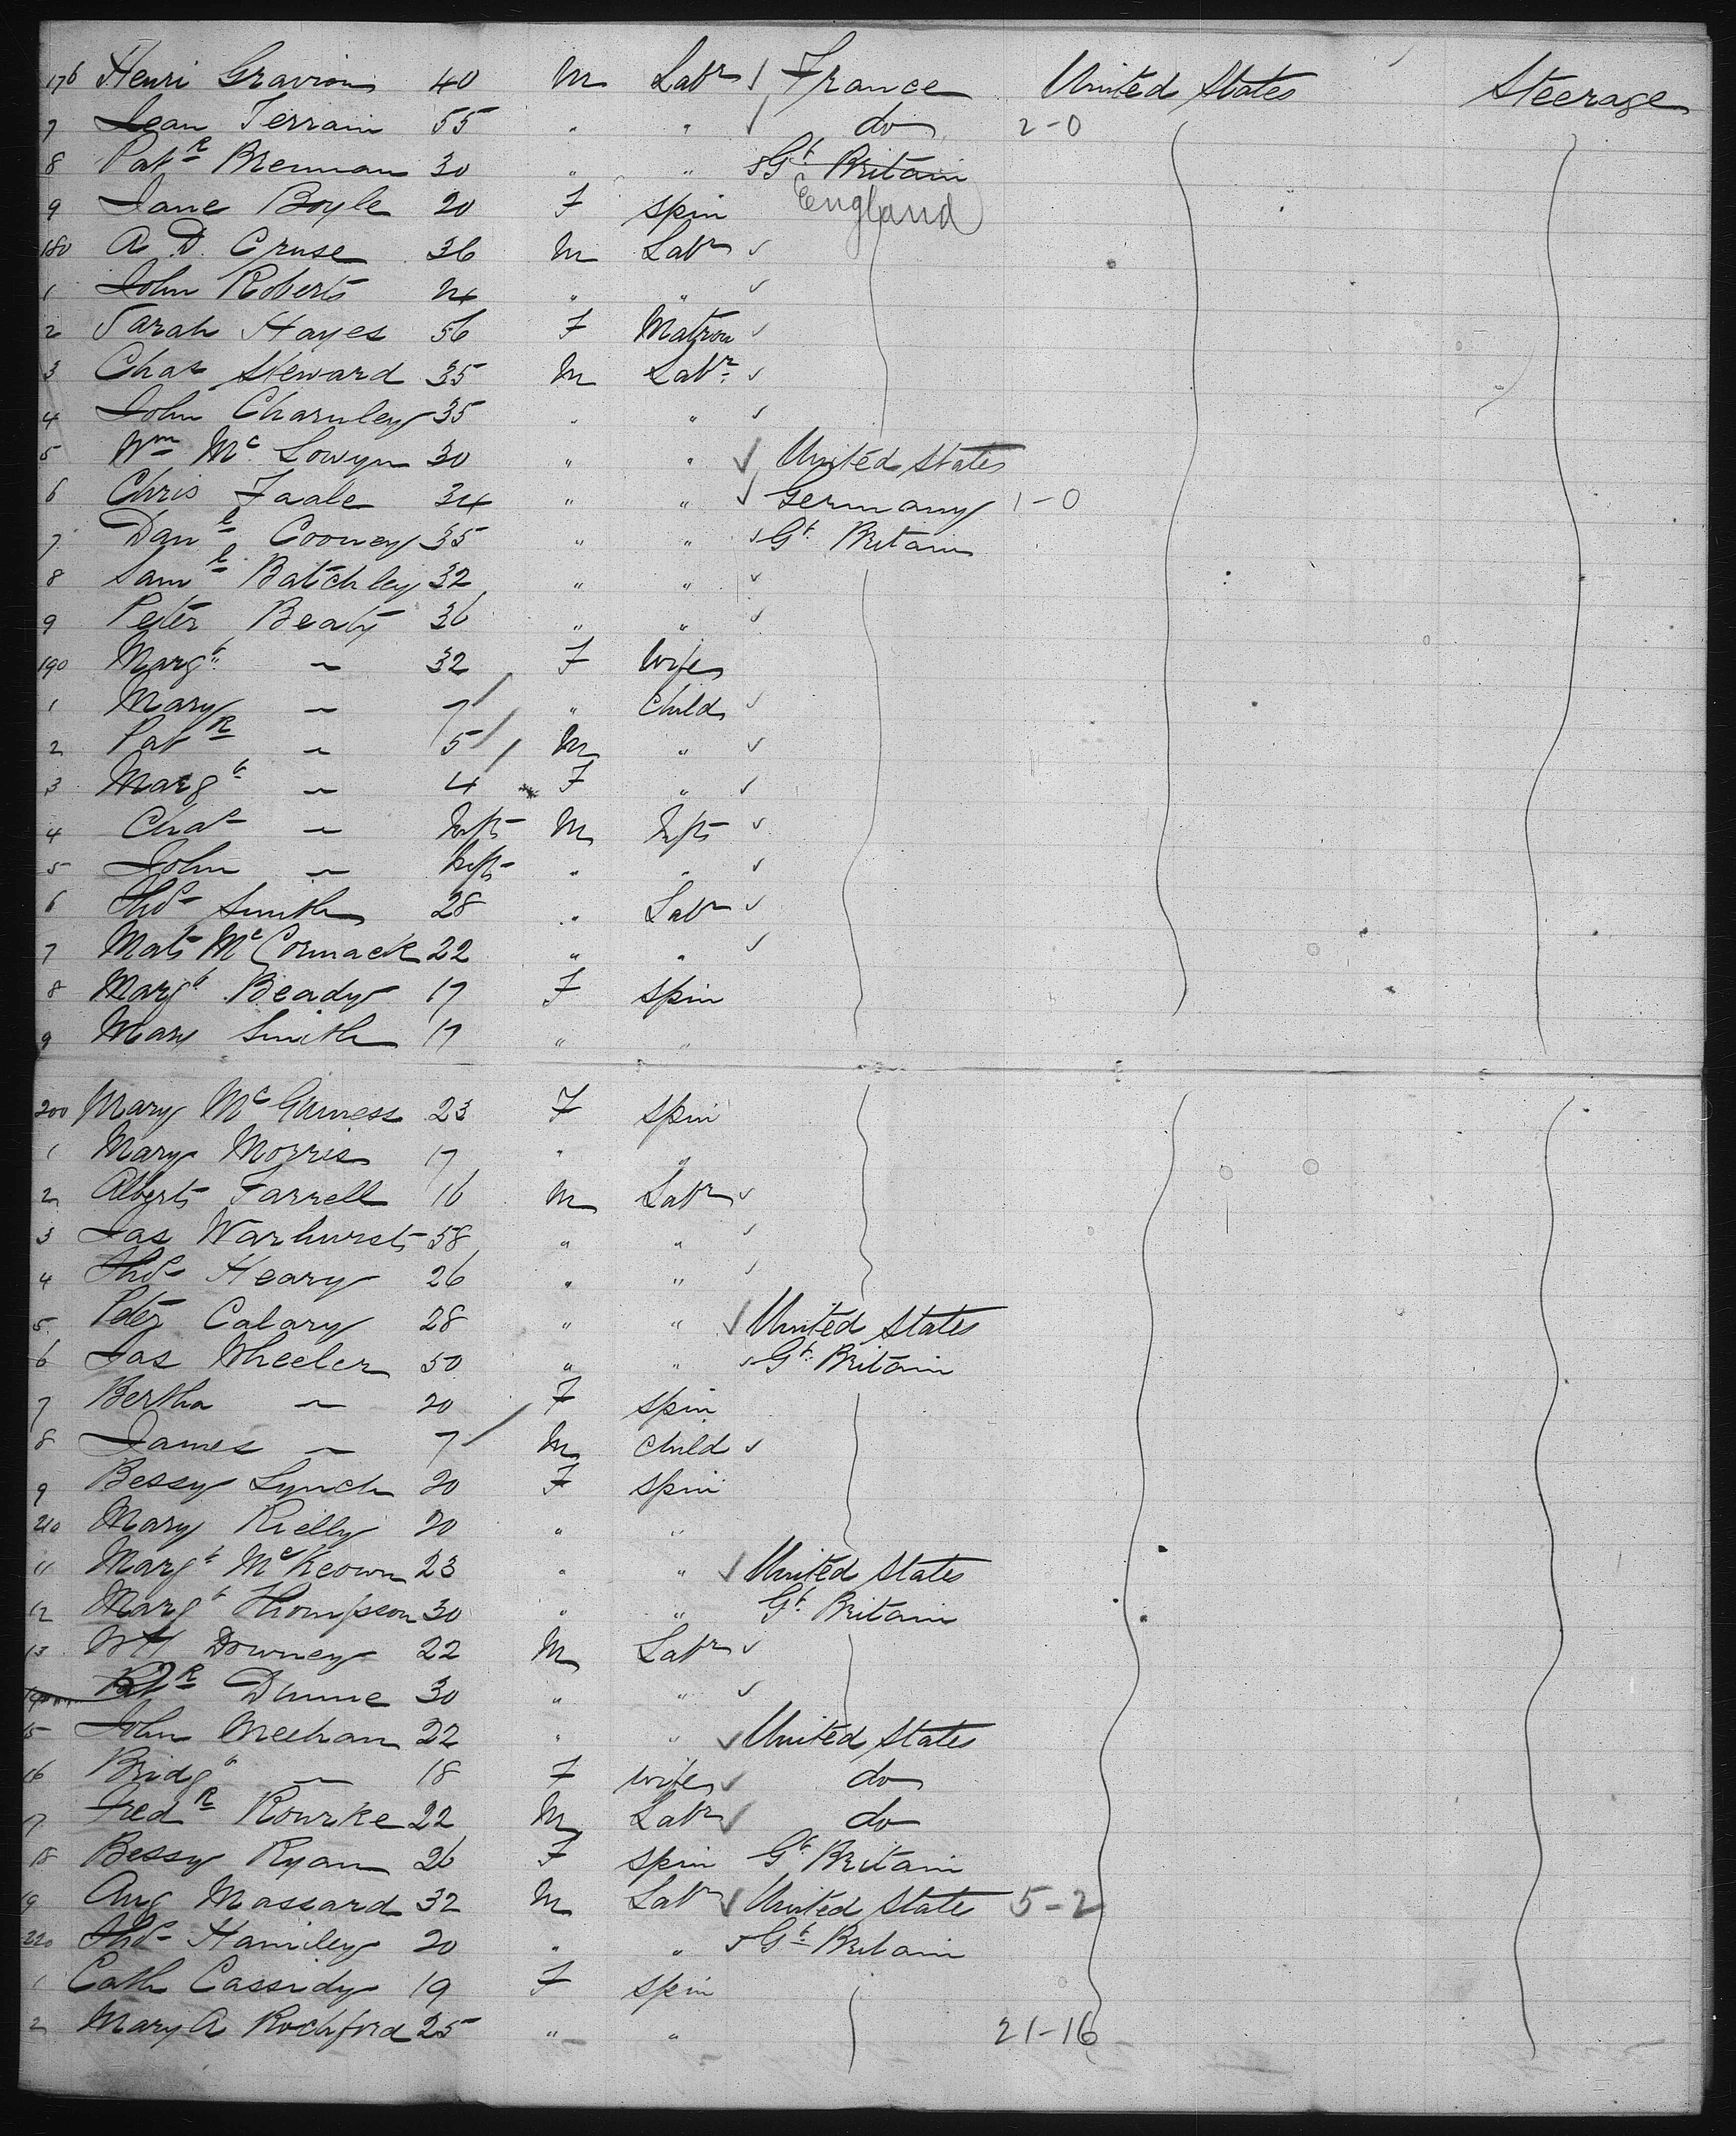 176 Henri Gravion 40 M Labr France United States Steerage
7 Jean Terrain 55 " " do 2-0
8 Patk Brennan 30 " " Gt Britain
9 Jane Boyle 20 F Spin England
180 A. D. Cruse 36 M Labr
1 John Roberts 24 " "
2 Sarah Hayes 56 F Matron
3 Chas Steward 35 M Labr
4 John Charnley 35 " "
5 Wm Mc Lowyn 30 " " United States
6 Chris Faale 34 " " Germany 1-0
7 Danl Cooney 35 " " Gt Britain
8 Saml Batchley 32 " "
9 Peter Beaty 36 " "
190 Margt ~ 32 F Wife
1 Mary ~ 7 " Child
2 Patk ~ 5 M "
3 Margt ~ 4 F "
4 Chas ~ Inft M Inft
5 John ~ Inft " "
6 Thos Smith 28 " Labr
7 Mat McCormack 22 " "
8 Margt Beady 17 F Spin
9 Mary Smith 17 " "
200 Mary McGuiness 23 F Spin
1 Mary Morris 17 " "
2 Albert Farrell 16 M Labr
3 Jas Warhurst 58 " "
4 Thos Heary 26 " "
5 Peter Calary 28 " " United States
6 Jas Wheeler 50 " " Gt Britain
7 Bertha ~ 20 F Spin
8 James ~ 7 M Child
9 Bessy Lynch 20 F Spin
210 Mary Rielly 20 " "
11 Margt McKeown 23 " " United States
12 Margt Thompson 30 " " Gt Britain
13 WH Downey 22 M Labr
14 Patk Dunne 30 " "
15 John Meehan 22 " " United States
16 Bridgt ~ 18 F Wife do
17 Fredk Rourke 22 M Labr do
18 Bessy Ryan 26 F Spin Gt Britain
19 Aug Massard 32 M Labr United States 5-2
220 Thos Hamiley 20 " " Gt Britain
1 Cath Cassidy 19 F Spin
2 Mary A Rochford 25 " " 21-16